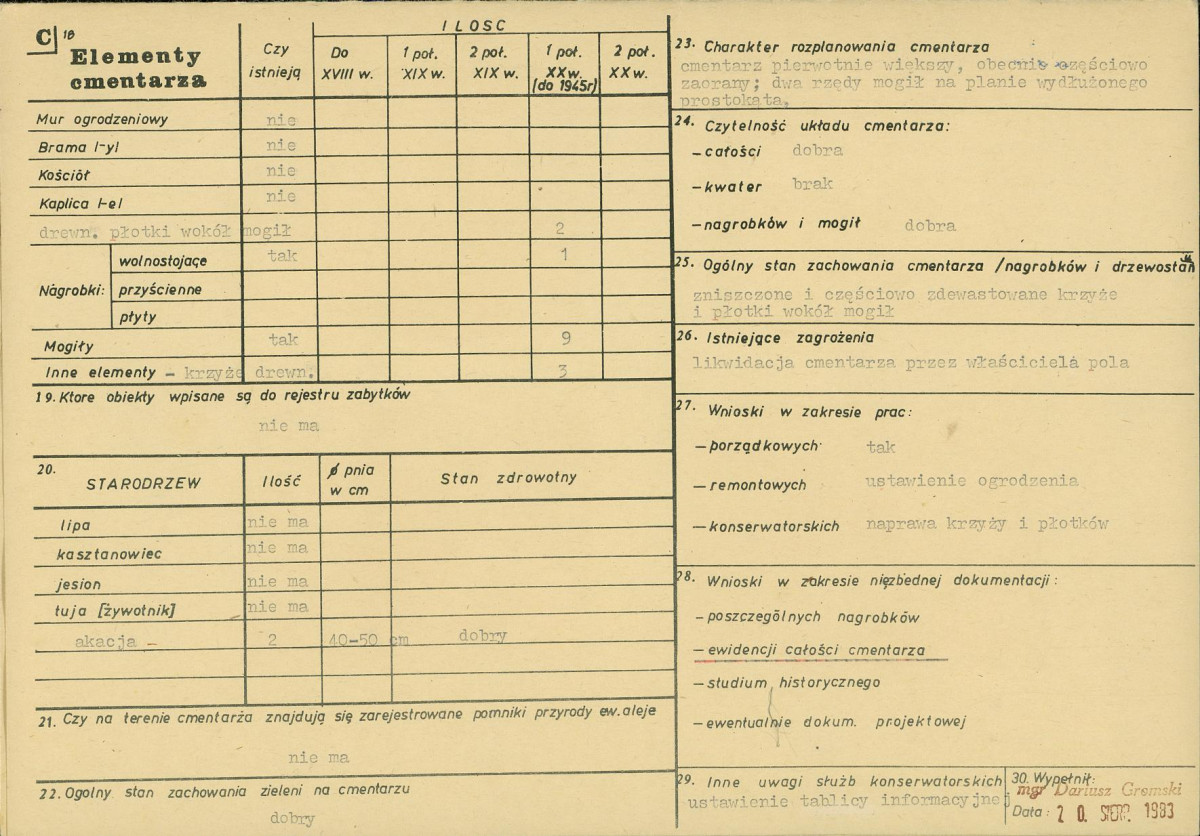 C 18
Elementy cmentarza
Czy istnieją
ILOSC
Do XVIII w.
1 poł. XIX w.
2 poł. XIX w.
1 poł. XX w. (do 1945r)
2 poł. XX w.
Mur ogrodzeniowy nie
Brama l-yl nie
Kościół nie
Kaplica l-el nie
drewn. płotki wokół mogił 2
Nagrobki: wolnostojące tak 1
przyścienne
płyty
Mogiły tak 9
Inne elementy - krzyże drewn. 3
19. Ktore obiekty wpisane są do rejestru zabytków
nie ma
20. STARODRZEW Ilość ø pnia w cm Stan zdrowotny
lipa nie ma
kasztanowiec nie ma
jesion nie ma
tuja [żywotnik] nie ma
akacja - 2 40-50 cm dobry
21. Czy na terenie cmentarza znajdują się zarejestrowane pomniki przyrody ew. aleje
nie ma
22. Ogolny stan zachowania zieleni na cmentarzu
dobry
23. Charakter rozplanowania cmentarza
cmentarz pierwotnie większy, obecnie częściowo
zaorany; dwa rzędy mogił na planie wydłużonego
prostokąta.
24. Czytelność układu cmentarza:
- całości dobra
- kwater brak
- nagrobków i mogił dobra
25. Ogólny stan zachowania cmentarza /nagrobków i drzewostan
zniszczone i częściowo zdewastowane krzyże
i płotki wokół mogił
26. Istniejące zagrożenia
likwidacja cmentarza przez właściciela pola
27. Wnioski w zakresie prac:
- porządkowych tak
- remontowych ustawienie ogrodzenia
- konserwatorskich naprawa krzyży i płotków
28. Wnioski w zakresie niezbędnej dokumentacji:
- poszczególnych nagrobków
- ewidencji całości cmentarza
- studium historycznego
- ewentualnie dokum. projektowej
29. Inne uwagi służb konserwatorskich
ustawienie tablicy informacyjnej
30. Wypełnił:
mgr Dariusz Gremski
Data: 20. SIERP. 1983